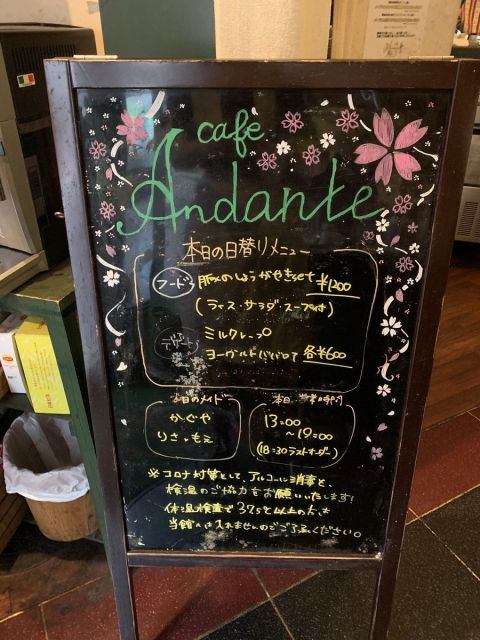 cafe
Andante
本日の日替りメニュー
フード 豚のしょうがやきset ¥1200
(ライス・サラダ スープ付)
デザート ミルクレープ
ヨーグルトババロア 各¥600
本日のメイド
かぐや
りさ・もえ
本日 営業時間
13:00
〜19:00
(18:30ラストオーダー)
※コロナ対策として、アルコール消毒と、
検温のご協力をお願いいたします!
体温検査で37.5℃以上の方は
当館へは入れませんのでご了承ください。